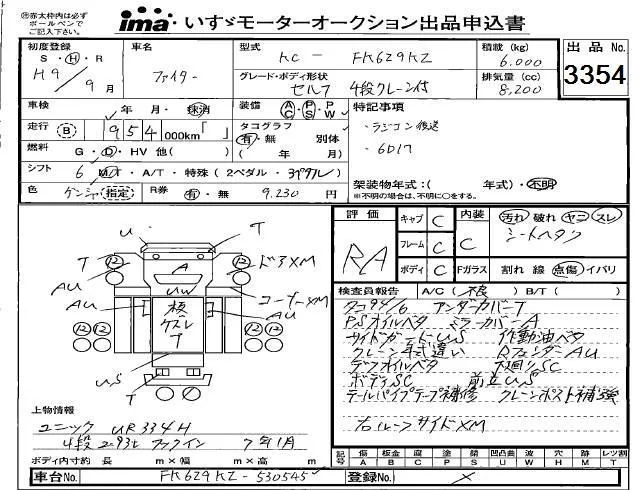 ㊟赤太枠内は必ず
ボールペンで
ご記入下さい。
ima いすゞモーターオークション出品申込書
初度登録 S・H・R H9/9月
車名 ファイター
型式 KC-FK629KZ
グレード・ボディ形状 セルフ 4段クレーン付
積載(kg) 6,000
排気量(cc) 8,200
出品No. 3354
車検 年 月・抹消
装備 AC・PS・PW
走行 B 954 000km「 」
タコグラフ 有・無 別体 ( 年 月)
燃料 G・D・HV 他( )
シフト 6 MT・A/T・特殊(2ペダル・3ペダル)
色 指定
R券 有・無 9.230円
特記事項
・ラジコン後送
・6D17
架装物年式:( 年式)・不明
※不明の場合は、不明に○をする。
評価 RA
キャブ C
フレーム C
ボディ C
内装 C
Fガラス
汚れ 破れ ヤニ スレ
シートヘタリ
割れ 線 点傷 イバリ
U T
T ⑫ A ⑫ ドアXM
UW
AU コーナーXM
AU AU
⑫⑫ ⑫⑫
T
US
T
検査員報告 A/C( ) B/T( )
タコ94/6 アンダーカバーT
P.Sオイルベタ ミラーカバーA
サイドガードUS 作動油ベタ
クレーン年式違い RフェンダーAU
デフオイルベタ 下廻りSC
ボディSC US
テールパイプテープ補修 クレーンポスト補強
右ルーフサイドXM
上物情報
ユニック UR334H
4段 2.93t フックイン 7年1月
ボディ内寸約 長 m×幅 m×高 m
記号 傷A 板金B 腐C 塗P 錆S 凹凸曲U 波W 穴H 跡M レツ割T
車台No. FK629KZ-530545
登録No.